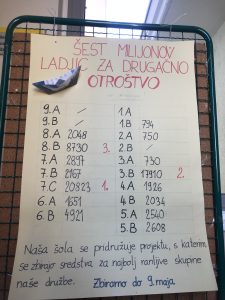 ŠEST MILIJONOV
LADJIC ZA DRUGAČNO
OTROŠTVO
9.A /
9.B /
8.A 2048
8.B 8730 3.
7.A 2897
7.B 2167
7.C 20823 1.
6.A 1651
6.B 4921
1.A
1.B 794
2.A 750
2.B /
3.A 730
3.B 17910 2.
4.A 1926
4.B 2034
5.A 2540
5.B 2608
Naša šola se pridružuje projektu, s katerim
se zbirajo sredstva za najbolj ranljive skupine
naše družbe. Zbiramo do 9. maja.